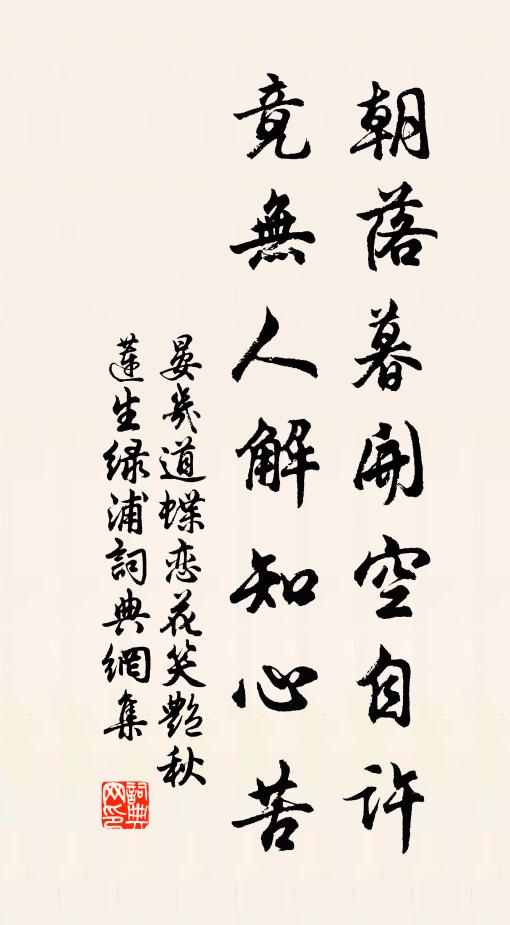 朝落暮開空自許
竟無人解知心苦
晏幾道蝶恋花笑艷秋
蓮生緑浦詞典網集
詞典网印